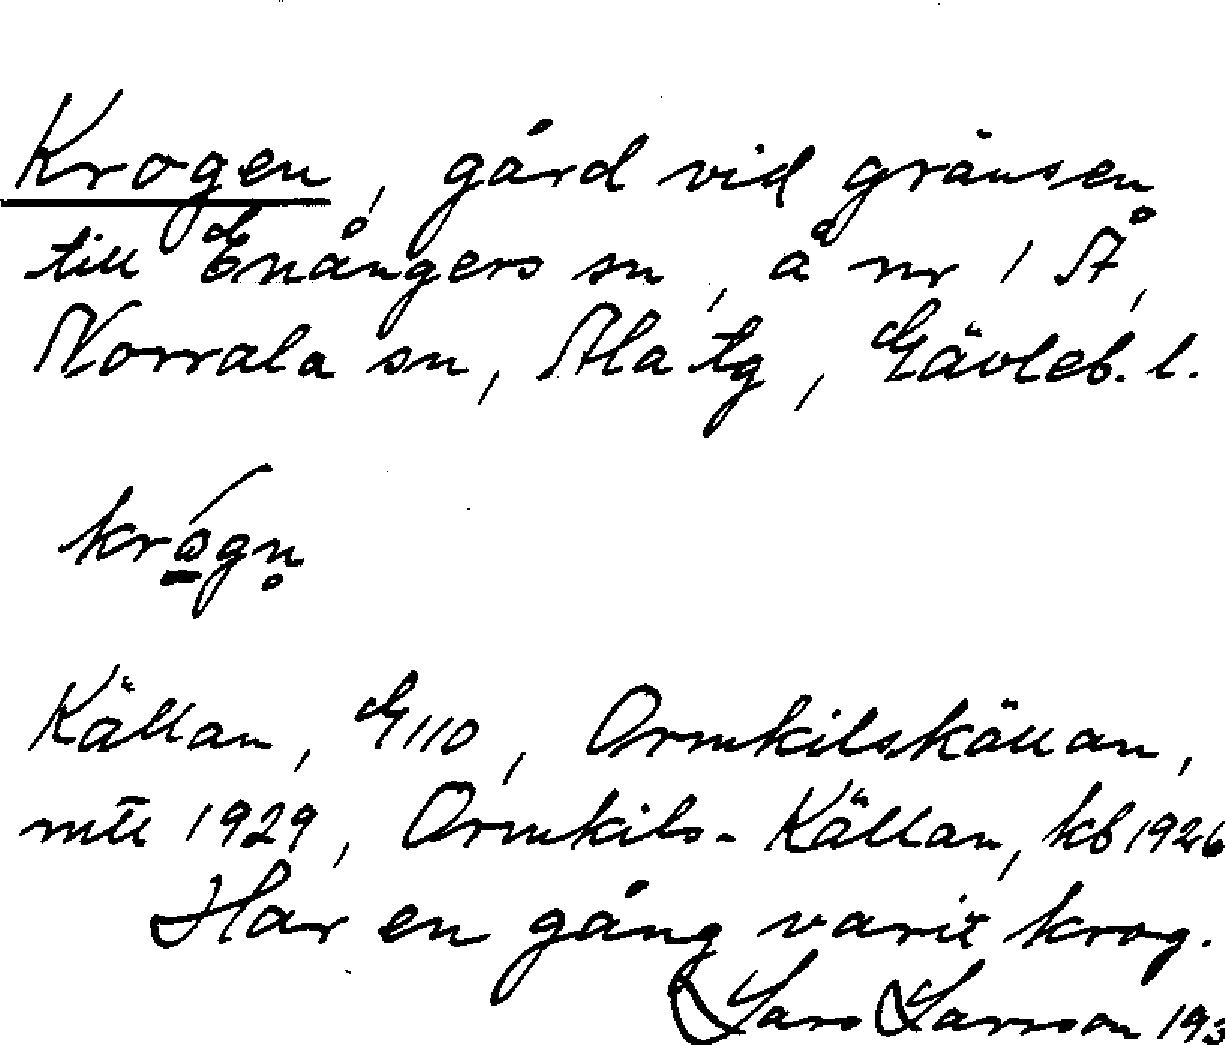 Krogen, gård vid gränsen
till Enångers sn, å nr 1 Å,
Norrala sn, Ala tg, Gävleb. l.
krógn̥
Källan, G110, Ormkilskällan,
mtl 1929, Ormkils-Källan, kb 1926
Har en gång varit krog.
Lars Larsson 193